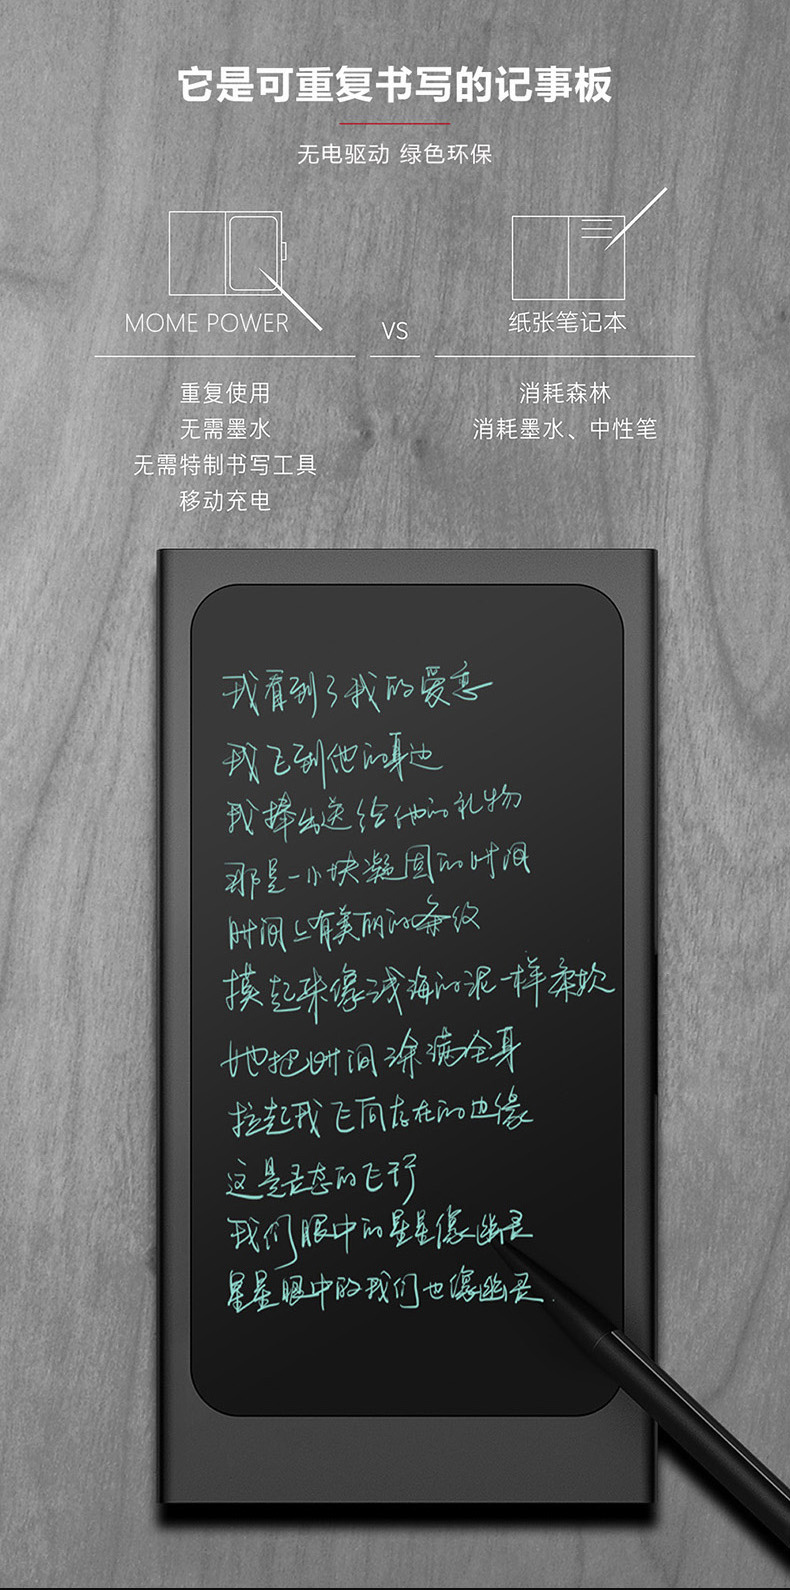 它是可重复书写的记事板
无电驱动 绿色环保
MOME POWER
VS
纸张笔记本
重复使用
无需墨水
无需特制书写工具
移动充电
消耗森林
消耗墨水、中性笔
我看到了我的爱恋
我飞到他的身边
我捧出送给他的礼物
那是一小块凝固的时间
时间上有美丽的条纹
摸起来像浅海的泥一样柔软
她把时间涂满全身
拉起我飞向存在的边缘
这是灵态的飞行
我们眼中的星星像幽灵
星星眼中的我们也像幽灵.